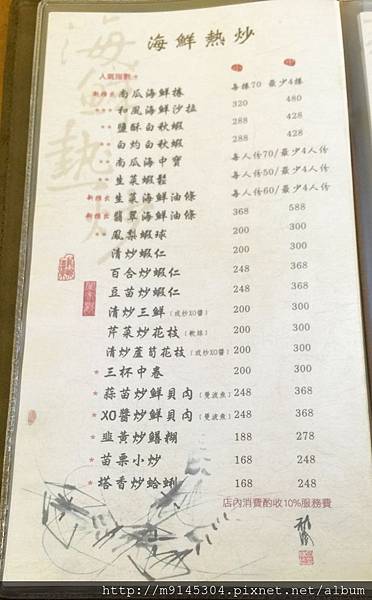 海鮮熱炒
人氣指數*
新推出 南瓜海鮮捲 每捲70 最少4捲
** 和風海鮮沙拉 320 480
** 鹽酥白秋蝦 288 428
** 白灼白秋蝦 288 428
** 南瓜海中寶 每人份70/最少4人份
** 生菜蝦鬆 每人份50/最少4人份
新推出 生菜海鮮油條 每人份60/最少4人份
新推出 翡翠海鮮油條 368 588
** 鳳梨蝦球 200 300
清炒蝦仁 200 300
百合炒蝦仁 248 368
豆苗炒蝦仁 248 368
清炒三鮮(或炒XO醬) 200 300
芹菜炒花枝(軟絲) 200 300
清炒蘆筍花枝(或炒XO醬) 200 300
* 三杯中卷 200 300
* 蒜苗炒鮮貝肉(曼波魚) 248 368
* XO醬炒鮮貝肉(曼波魚) 248 368
* 韭黃炒鱔糊 188 278
* 苗栗小炒 168 248
* 塔香炒蛤蜊 168 248
店內消費酌收10%服務費
http://m9145304.pixnet.net/album